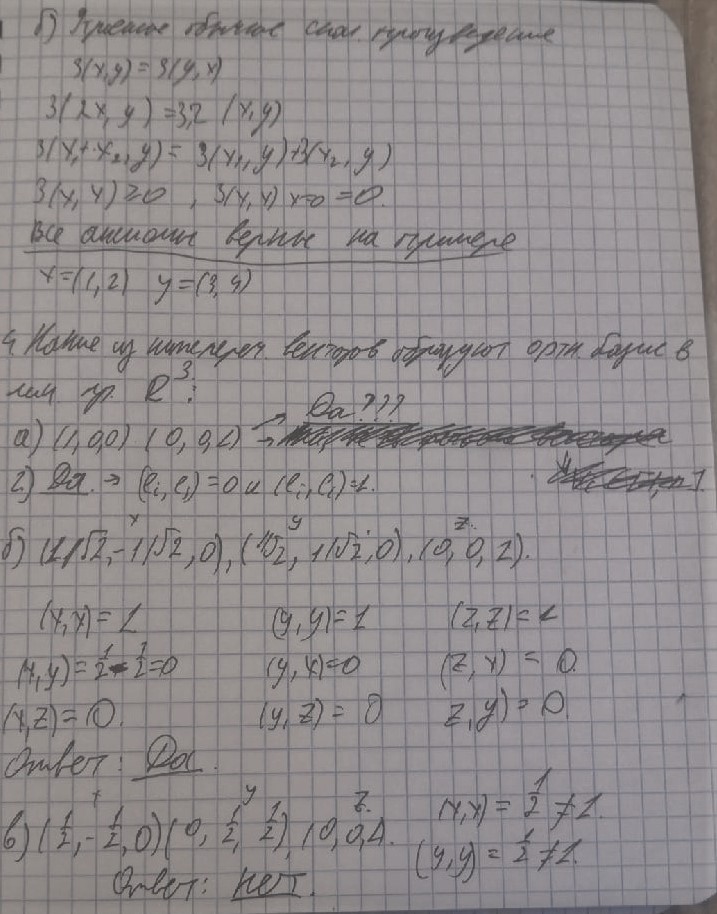 б) Утроенное обычное скал. произведение
3(x,y)=3(y,x)
3(λx, y)=3λ(x,y)
3(x₁+x₂, y)= 3(x₁, y)+3(x₂, y)
3(x, x)≥0, 3(x, x) x=0 =0.
Все аксиомы верны на примере
x=(1,2) y=(3,4)
4. Какие из нижеперeч. векторов образуют ортн. базис в
лин. пр. R³:
→ Да???
а) (1,0,0) (0,0,1) →
г) Да → (ei, ej)=0 и (ei, ei)=1.
x y z
б) (1/√2,-1/√2,0), (1/√2, 1/√2,0), (0, 0, 1).
(x,x)=1 (y,y)=1 (z,z)=1
(x,y)=1/2-1/2=0 (y,x)=0 (z,x)=0
(x,z)=0. (y,z)=0 z,y)=0
Ответ: Да.
x y z
в) (1/2,-1/2,0)(0, 1/2, 1/2), (0,0,1. (x,x)=1/2≠1.
(y,y)=1/2≠1.
Ответ: нет.